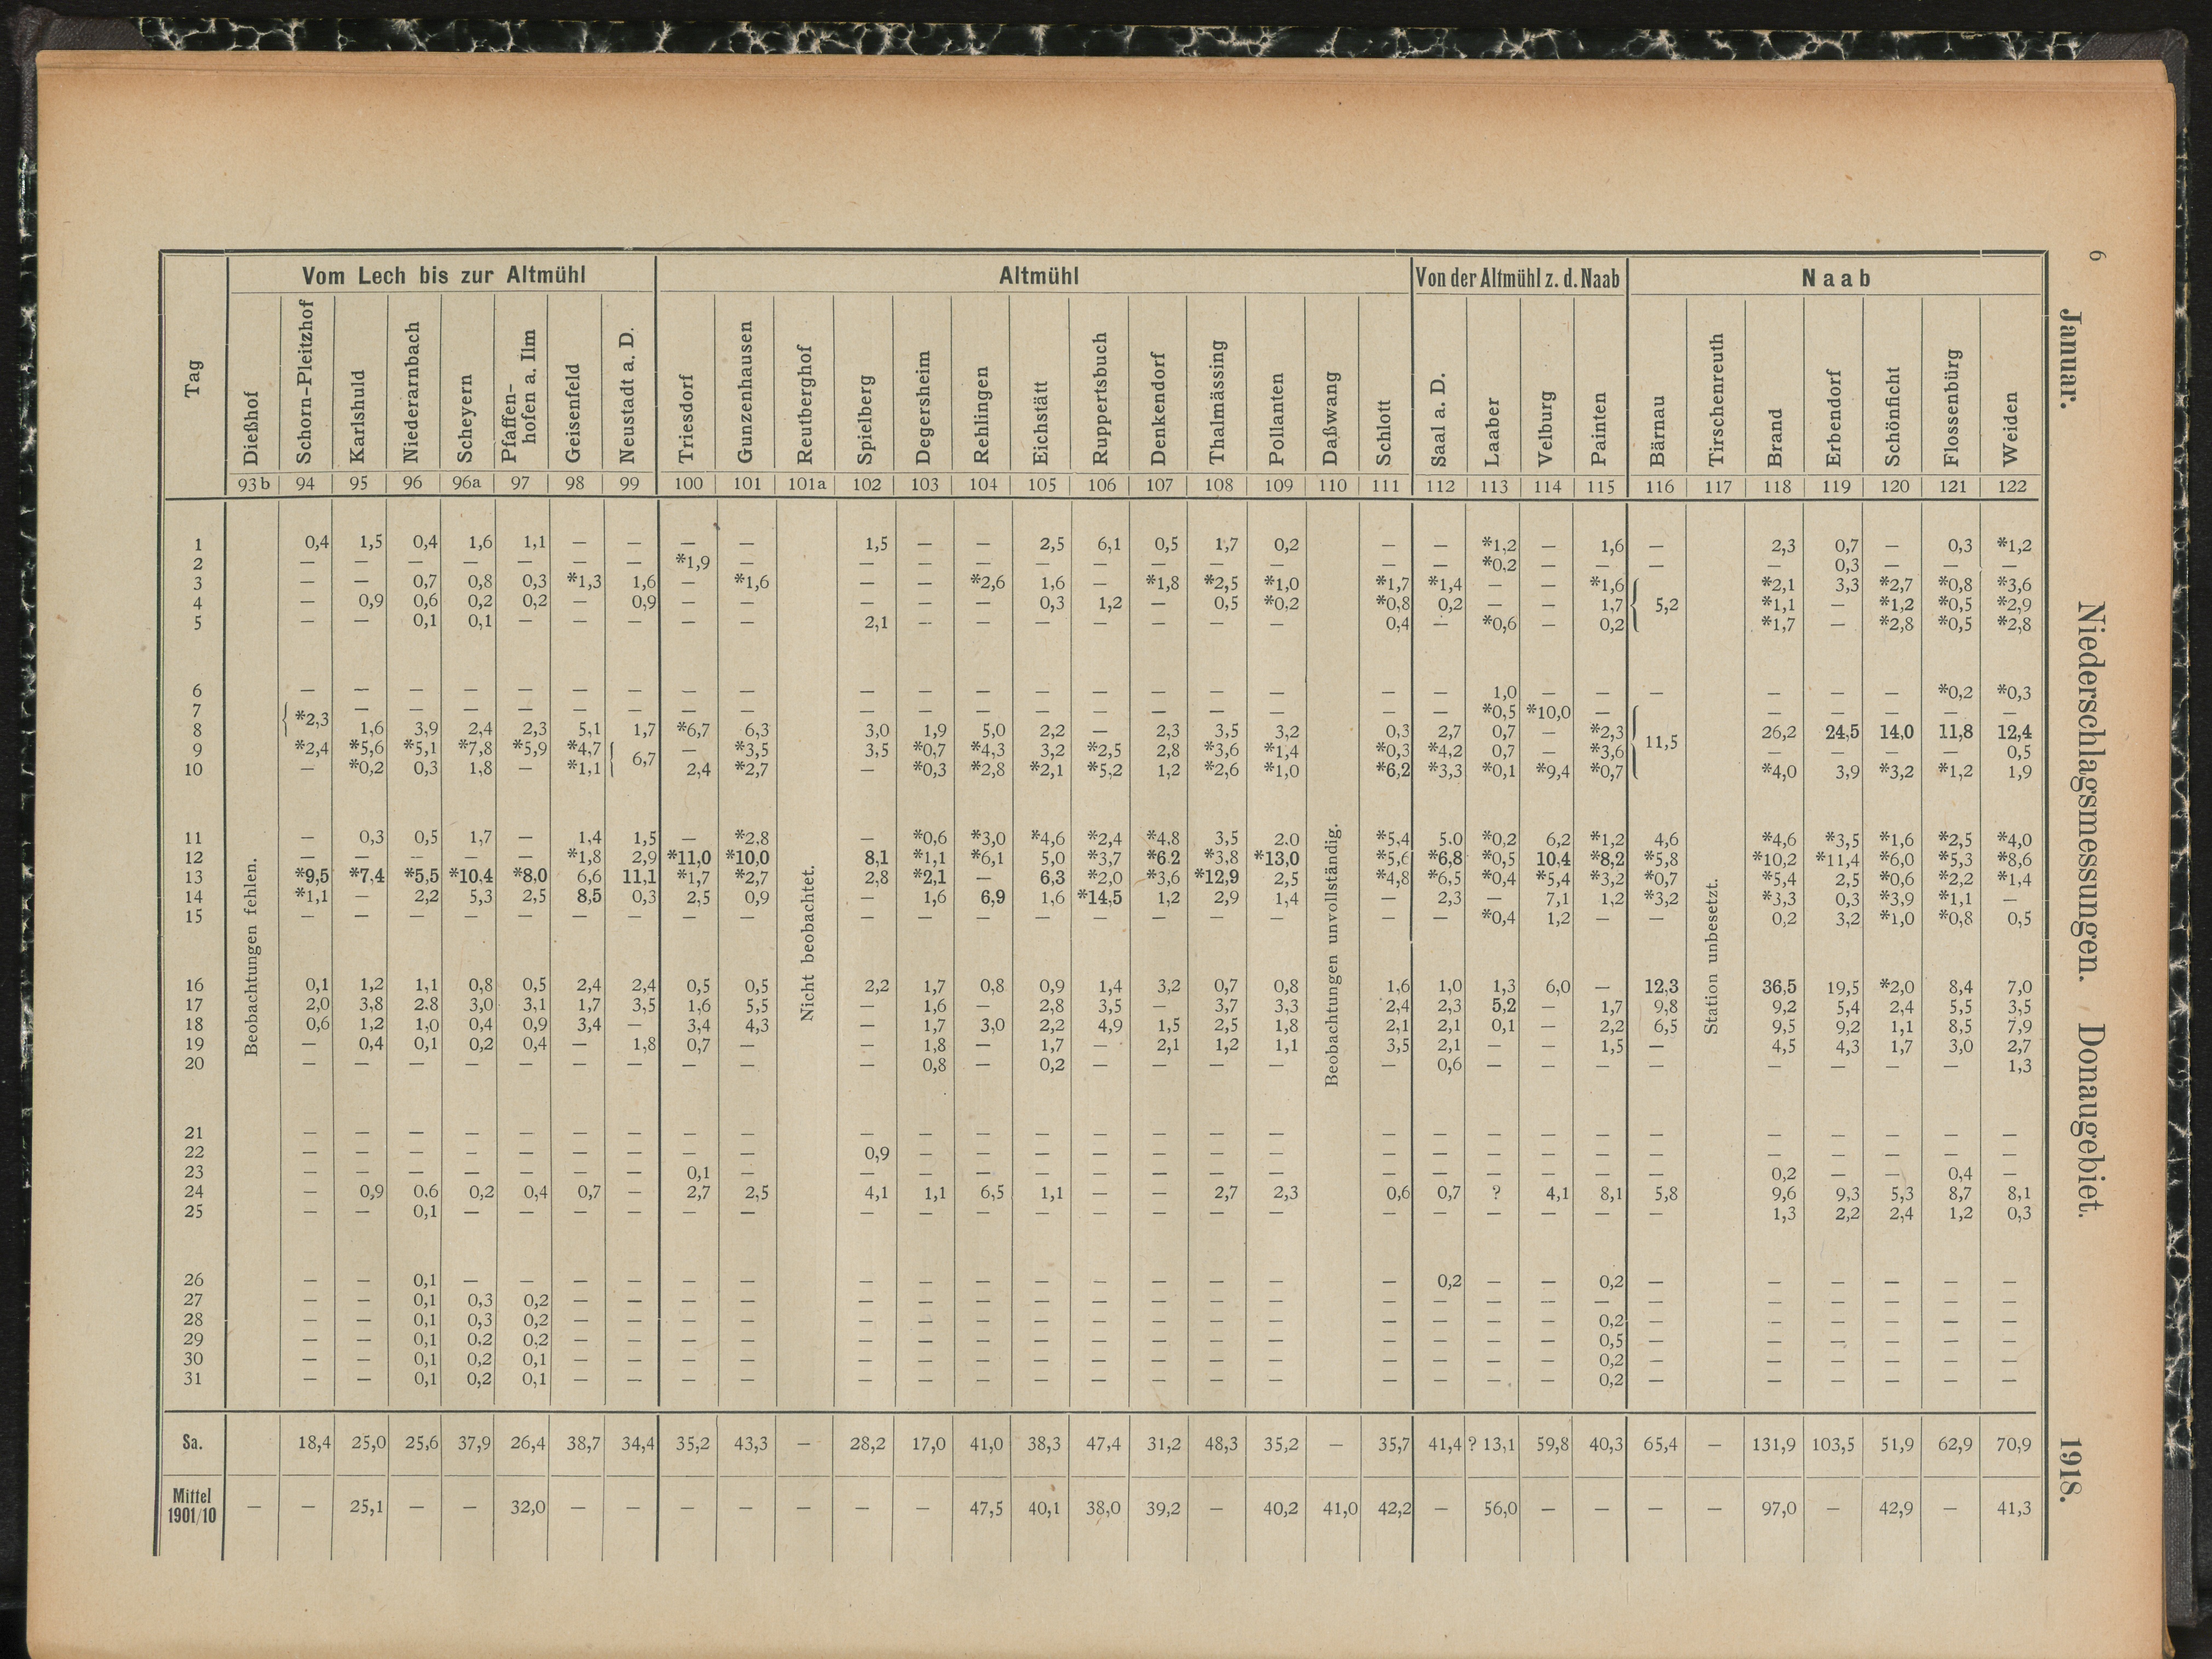 6
Januar. Niederschlagsmessungen. Donaugebiet. 1918.
Tag | Vom Lech bis zur Altmühl | Altmühl | Von der Altmühl z. d. Naab | Naab
Dießhof | Schorn-Pleitzhof | Karlshuld | Niederarnbach | Scheyern | Pfaffen-hofen a. Ilm | Geisenfeld | Neustadt a. D. | Triesdorf | Gunzenhausen | Reutberghof | Spielberg | Degersheim | Rehlingen | Eichstätt | Ruppertsbuch | Denkendorf | Thalmässing | Pollanten | Daßwang | Schlott | Saal a. D. | Laaber | Velburg | Painten | Bärnau | Tirschenreuth | Brand | Erbendorf | Schönficht | Flossenbürg | Weiden
93b | 94 | 95 | 96 | 96a | 97 | 98 | 99 | 100 | 101 | 101a | 102 | 103 | 104 | 105 | 106 | 107 | 108 | 109 | 110 | 111 | 112 | 113 | 114 | 115 | 116 | 117 | 118 | 119 | 120 | 121 | 122
Beobachtungen fehlen.
Nicht beobachtet.
Beobachtungen unvollständig.
Station unbesetzt.
1 | 0,4 | 1,5 | 0,4 | 1,6 | 1,1 | — | — | — | — | 1,5 | — | — | 2,5 | 6,1 | 0,5 | 1,7 | 0,2 | — | — | *1,2 | — | 1,6 | — | 2,3 | 0,7 | — | 0,3 | *1,2
2 | — | — | — | — | — | — | — | *1,9 | — | — | — | — | — | — | — | — | — | — | — | *0,2 | — | — | — | — | 0,3 | — | — | —
3 | — | — | 0,7 | 0,8 | 0,3 | *1,3 | 1,6 | — | *1,6 | — | — | *2,6 | 1,6 | — | *1,8 | *2,5 | *1,0 | *1,7 | *1,4 | — | — | *1,6 | { | *2,1 | 3,3 | *2,7 | *0,8 | *3,6
4 | — | 0,9 | 0,6 | 0,2 | 0,2 | — | 0,9 | — | — | — | — | — | 0,3 | 1,2 | — | 0,5 | *0,2 | *0,8 | 0,2 | — | — | 1,7 | 5,2 | *1,1 | — | *1,2 | *0,5 | *2,9
5 | — | — | 0,1 | 0,1 | — | — | — | — | — | 2,1 | — | — | — | — | — | — | — | 0,4 | — | *0,6 | — | 0,2 | *1,7 | — | *2,8 | *0,5 | *2,8
6 | — | — | — | — | — | — | — | — | — | — | — | — | — | — | — | — | — | — | — | 1,0 | — | — | — | — | — | — | *0,2 | *0,3
7 | { *2,3 | — | — | — | — | — | — | — | — | — | — | — | — | — | — | — | — | — | — | *0,5 | *10,0 | — | { | — | — | — | — | —
8 | 1,6 | 3,9 | 2,4 | 2,3 | 5,1 | 1,7 | *6,7 | 6,3 | 3,0 | 1,9 | 5,0 | 2,2 | — | 2,3 | 3,5 | 3,2 | 0,3 | 2,7 | 0,7 | — | *2,3 | 11,5 | 26,2 | 24,5 | 14,0 | 11,8 | 12,4
9 | *2,4 | *5,6 | *5,1 | *7,8 | *5,9 | *4,7 | { 6,7 | — | *3,5 | 3,5 | *0,7 | *4,3 | 3,2 | *2,5 | 2,8 | *3,6 | *1,4 | *0,3 | *4,2 | 0,7 | — | *3,6 | — | — | — | — | 0,5
10 | — | *0,2 | 0,3 | 1,8 | — | *1,1 | 2,4 | *2,7 | — | *0,3 | *2,8 | *2,1 | *5,2 | 1,2 | *2,6 | *1,0 | *6,2 | *3,3 | *0,1 | *9,4 | *0,7 | *4,0 | 3,9 | *3,2 | *1,2 | 1,9
11 | — | 0,3 | 0,5 | 1,7 | — | 1,4 | 1,5 | — | *2,8 | — | *0,6 | *3,0 | *4,6 | *2,4 | *4,8 | 3,5 | 2,0 | *5,4 | 5,0 | *0,2 | 6,2 | *1,2 | 4,6 | *4,6 | *3,5 | *1,6 | *2,5 | *4,0
12 | — | — | — | — | — | *1,8 | 2,9 | *11,0 | *10,0 | 8,1 | *1,1 | *6,1 | 5,0 | *3,7 | *6,2 | *3,8 | *13,0 | *5,6 | *6,8 | *0,5 | 10,4 | *8,2 | *5,8 | *10,2 | *11,4 | *6,0 | *5,3 | *8,6
13 | *9,5 | *7,4 | *5,5 | *10,4 | *8,0 | 6,6 | 11,1 | *1,7 | *2,7 | 2,8 | *2,1 | — | 6,3 | *2,0 | *3,6 | *12,9 | 2,5 | *4,8 | *6,5 | *0,4 | *5,4 | *3,2 | *0,7 | *5,4 | 2,5 | *0,6 | *2,2 | *1,4
14 | *1,1 | — | 2,2 | 5,3 | 2,5 | 8,5 | 0,3 | 2,5 | 0,9 | — | 1,6 | 6,9 | 1,6 | *14,5 | 1,2 | 2,9 | 1,4 | — | 2,3 | — | 7,1 | 1,2 | *3,2 | *3,3 | 0,3 | *3,9 | *1,1 | —
15 | — | — | — | — | — | — | — | — | — | — | — | — | — | — | — | — | — | — | — | *0,4 | 1,2 | — | — | 0,2 | 3,2 | *1,0 | *0,8 | 0,5
16 | 0,1 | 1,2 | 1,1 | 0,8 | 0,5 | 2,4 | 2,4 | 0,5 | 0,5 | 2,2 | 1,7 | 0,8 | 0,9 | 1,4 | 3,2 | 0,7 | 0,8 | 1,6 | 1,0 | 1,3 | 6,0 | — | 12,3 | 36,5 | 19,5 | *2,0 | 8,4 | 7,0
17 | 2,0 | 3,8 | 2,8 | 3,0 | 3,1 | 1,7 | 3,5 | 1,6 | 5,5 | — | 1,6 | — | 2,8 | 3,5 | — | 3,7 | 3,3 | 2,4 | 2,3 | 5,2 | — | 1,7 | 9,8 | 9,2 | 5,4 | 2,4 | 5,5 | 3,5
18 | 0,6 | 1,2 | 1,0 | 0,4 | 0,9 | 3,4 | — | 3,4 | 4,3 | — | 1,7 | 3,0 | 2,2 | 4,9 | 1,5 | 2,5 | 1,8 | 2,1 | 2,1 | 0,1 | — | 2,2 | 6,5 | 9,5 | 9,2 | 1,1 | 8,5 | 7,9
19 | — | 0,4 | 0,1 | 0,2 | 0,4 | — | 1,8 | 0,7 | — | — | 1,8 | — | 1,7 | — | 2,1 | 1,2 | 1,1 | 3,5 | 2,1 | — | — | 1,5 | — | 4,5 | 4,3 | 1,7 | 3,0 | 2,7
20 | — | — | — | — | — | — | — | — | — | — | 0,8 | — | 0,2 | — | — | — | — | — | 0,6 | — | — | — | — | — | — | — | — | 1,3
21 | — | — | — | — | — | — | — | — | — | — | — | — | — | — | — | — | — | — | — | — | — | — | — | — | — | — | — | —
22 | — | — | — | — | — | — | — | — | — | 0,9 | — | — | — | — | — | — | — | — | — | — | — | — | — | — | — | — | — | —
23 | — | — | — | — | — | — | — | 0,1 | — | — | — | — | — | — | — | — | — | — | — | — | — | — | — | 0,2 | — | — | 0,4 | —
24 | — | 0,9 | 0,6 | 0,2 | 0,4 | 0,7 | — | 2,7 | 2,5 | 4,1 | 1,1 | 6,5 | 1,1 | — | — | 2,7 | 2,3 | 0,6 | 0,7 | ? | 4,1 | 8,1 | 5,8 | 9,6 | 9,3 | 5,3 | 8,7 | 8,1
25 | — | — | 0,1 | — | — | — | — | — | — | — | — | — | — | — | — | — | — | — | — | — | — | — | — | 1,3 | 2,2 | 2,4 | 1,2 | 0,3
26 | — | — | 0,1 | — | — | — | — | — | — | — | — | — | — | — | — | — | — | — | 0,2 | — | — | 0,2 | — | — | — | — | — | —
27 | — | — | 0,1 | 0,3 | 0,2 | — | — | — | — | — | — | — | — | — | — | — | — | — | — | — | — | — | — | — | — | — | — | —
28 | — | — | 0,1 | 0,3 | 0,2 | — | — | — | — | — | — | — | — | — | — | — | — | — | — | — | — | 0,2 | — | — | — | — | — | —
29 | — | — | 0,1 | 0,2 | 0,2 | — | — | — | — | — | — | — | — | — | — | — | — | — | — | — | — | 0,5 | — | — | — | — | — | —
30 | — | — | 0,1 | 0,2 | 0,1 | — | — | — | — | — | — | — | — | — | — | — | — | — | — | — | — | 0,2 | — | — | — | — | — | —
31 | — | — | 0,1 | 0,2 | 0,1 | — | — | — | — | — | — | — | — | — | — | — | — | — | — | — | — | 0,2 | — | — | — | — | — | —
Sa. | 18,4 | 25,0 | 25,6 | 37,9 | 26,4 | 38,7 | 34,4 | 35,2 | 43,3 | — | 28,2 | 17,0 | 41,0 | 38,3 | 47,4 | 31,2 | 48,3 | 35,2 | — | 35,7 | 41,4 | ? 13,1 | 59,8 | 40,3 | 65,4 | — | 131,9 | 103,5 | 51,9 | 62,9 | 70,9
Mittel 1901/10 | — | — | 25,1 | — | — | 32,0 | — | — | — | — | — | — | — | 47,5 | 40,1 | 38,0 | 39,2 | — | 40,2 | 41,0 | 42,2 | — | 56,0 | — | — | — | — | 97,0 | — | 42,9 | — | 41,3